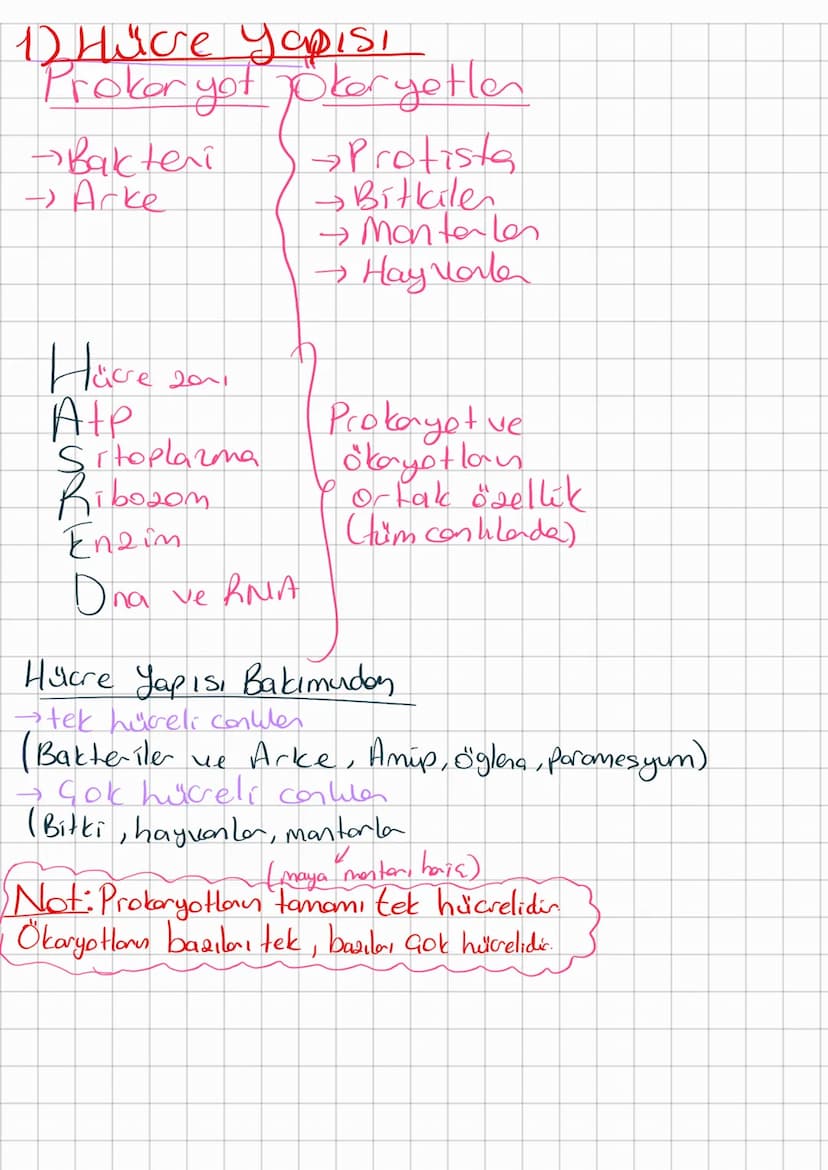 1) Hücre Yapısı
Prokaryot Ökaryotlar
→Bakteri
→ Arke
→Protista
→Bitkiler
→ Mantarlar
→ Hayvanlar
Hücre zarı
Atp
Sitoplazma
Ribozom
Enzim
Dna ve RNA
Prokaryot ve
ökaryotların
ortak özellik
(tüm canlılarda)
Hücre Yapısı Bakımından
→tek hücreli canlılar
(Bakteriler ve Arke, Amip, öglena, paramesyum)
→ Çok hücreli canlılar
(Bitki, hayvanlar, mantarlar
(maya mantarı hariç)
Not: Prokaryotların tamamı tek hücrelidir.
Ökaryotların bazıları tek, bazıları çok hücrelidir.